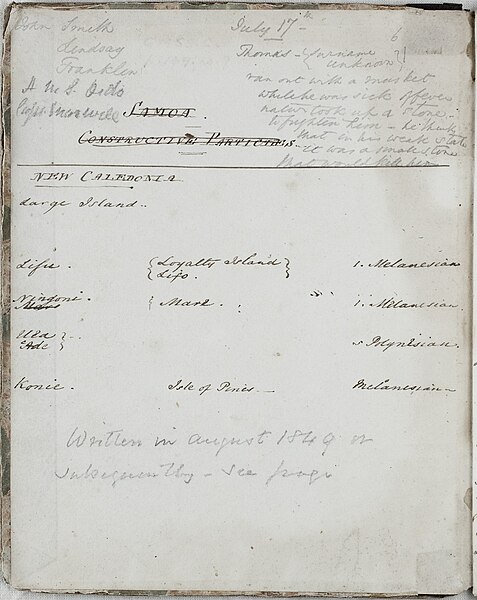 John Smith
Lindsay
Franklin
H M S Dido
Capt. Maxwell
July 17th
6
Thomas - (surname unknown)
ran out with a musket
while he was sick of fever
native took up a stone
to frighten him - he thinks
that in his weak state
it was a small stone
that would kill him
SAMOA.
CONSTRUCTIVE PARTICLES.
NEW CALEDONIA
Large Island..
Lifu. { Loyalty Island } 1. Melanesian
Lifo.
Ningoni. { Mare. 1. Melanesian
Mare
Uea }.. 5 Polynesian.
Konie. Isle of Pines — Melanesian —
Written in August 1849 or
subsequently - See page